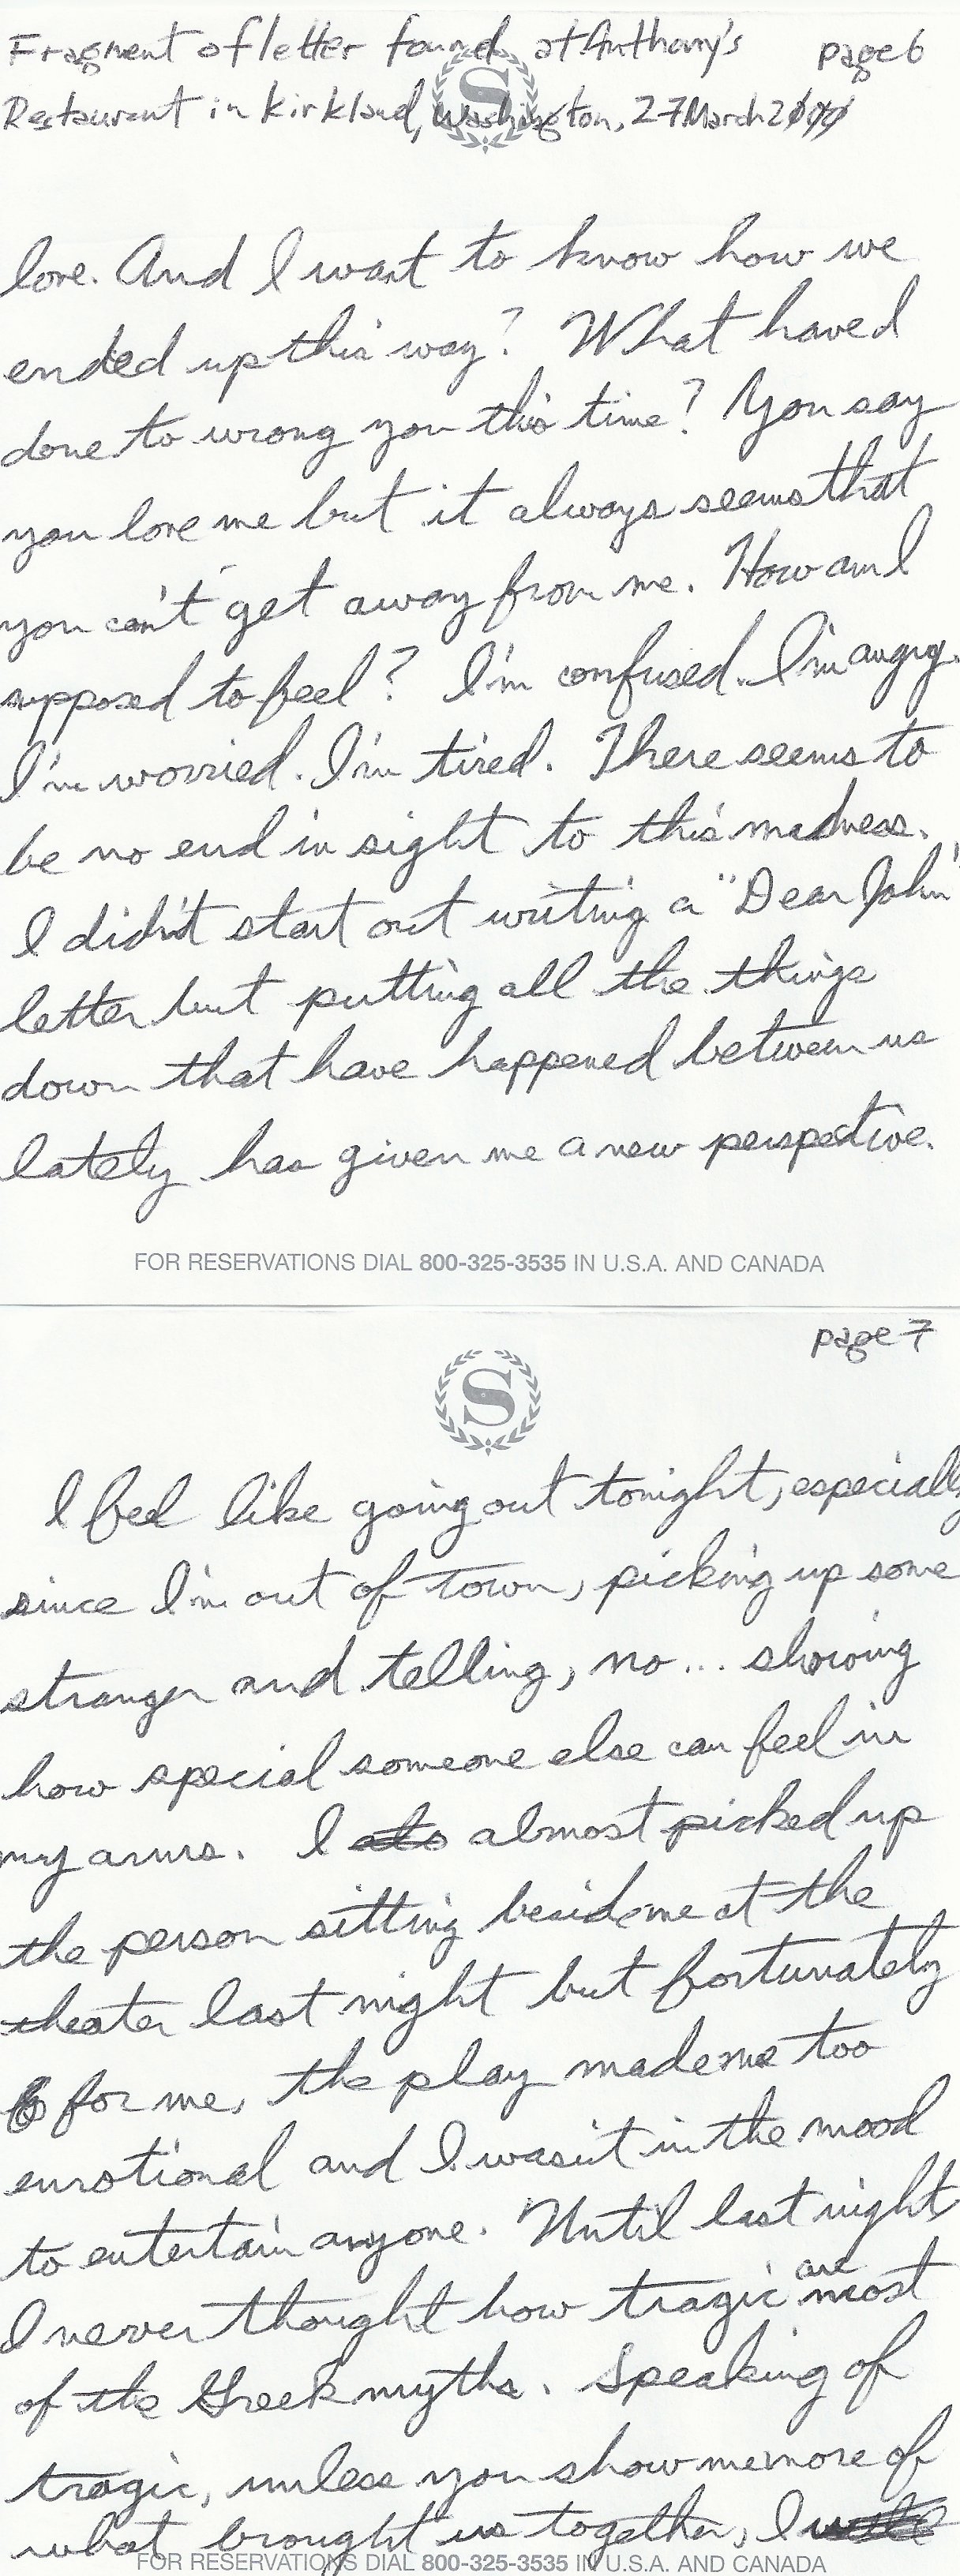 Fragment of letter found at Anthony's page 6
S
Restaurant in Kirkland, Washington, 27 March 2000
love. And I want to know how we
ended up this way? What have I
done to wrong you this time? You say
you love me but it always seems that
you can't get away from me. How am I
supposed to feel? I'm confused. I'm angry.
I'm worried. I'm tired. There seems to
be no end in sight to this madness.
I didn't start out writing a "Dear John"
letter but putting all the things
down that have happened between us
lately has given me a new perspective.
FOR RESERVATIONS DIAL 800-325-3535 IN U.S.A. AND CANADA
page 7
S
I feel like going out tonight, especially
since I'm out of town, picking up some
stranger and telling, no... showing
how special someone else can feel in
my arms. I almost picked up
the person sitting beside me at the
theater last night but fortunately
for me, the play made me too
emotional and I wasn't in the mood
to entertain anyone. Until last night,
I never thought how tragic are most
of the Greek myths. Speaking of
tragic, unless you show me more of
what brought us together, I will
FOR RESERVATIONS DIAL 800-325-3535 IN U.S.A. AND CANADA